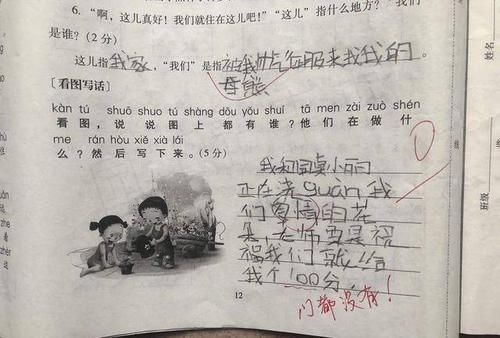 6. “啊，这儿真好！我们就住在这儿吧！”“这儿”指什么地方？“我们”
是谁？（2 分）
这儿指我家，“我们”是指被我帅气征服来找我的
母熊。
[看图写话]
kàn tú shuō shuo tú shàng dōu yǒu shuí tā men zài zuò shén
看图，说说图上都有谁？他们在做什
me rán hòu xiě xià lái
么？然后写下来。（5 分）
0
我和同桌小丽
正在尧guàn我
们爱情的花
朵，老师要是祝
福我们就给
我个100分，
门都没有！
12
姓名
班级
线